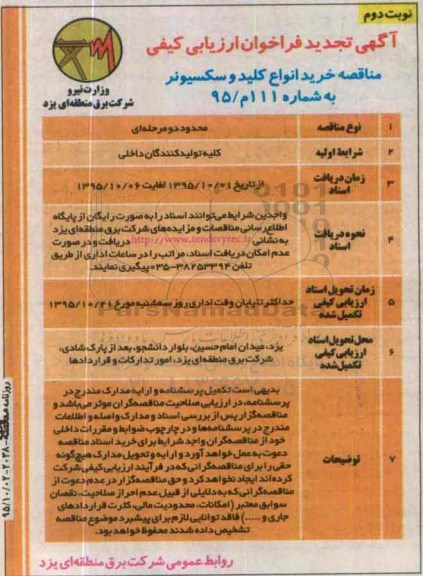 نوبت دوم
آگهی تجدید فراخوان ارزیابی کیفی
مناقصه خرید انواع کلید و سکسیونر
به شماره ۱۱۱م/۹۵
وزارت نیرو
شرکت برق منطقه‌ای یزد
۱ نوع مناقصه محدود دو مرحله‌ای
۲ شرایط اولیه کلیه تولیدکنندگان داخلی
۳ زمان دریافت اسناد از تاریخ ۱۳۹۵/۱۰/۰۱ لغایت ۱۳۹۵/۱۰/۰۶
۴ نحوه دریافت اسناد
واجدین شرایط می‌توانند اسناد را به صورت رایگان از پایگاه
اطلاع رسانی مناقصات و مزایده‌های شرکت برق منطقه‌ای یزد
به نشانی http://www.tenderyrec.ir دریافت و در صورت
عدم امکان دریافت اسناد، مراتب را در ساعات اداری از طریق
تلفن ۳۸۲۵۳۳۹۴-۰۳۵ پیگیری نمایند.
۵ زمان تحویل اسناد ارزیابی کیفی تکمیل شده
حداکثر تا پایان وقت اداری روز سه‌شنبه مورخ ۱۳۹۵/۱۰/۲۱
۶ محل تحویل اسناد ارزیابی کیفی تکمیل شده
یزد، میدان امام حسین، بلوار دانشجو، بعد از پارک شادی،
شرکت برق منطقه‌ای یزد، امور تدارکات و قراردادها
۷ توضیحات
بدیهی است تکمیل پرسشنامه و ارایه مدارک مندرج در
پرسشنامه، در ارزیابی صلاحیت مناقصه‌گران موثر می‌باشد و
مناقصه‌گزار پس از بررسی اسناد و مدارک واصله و اطلاعات
مندرج در پرسشنامه‌ها و در چارچوب ضوابط و مقررات داخلی
خود از مناقصه‌گران واجد شرایط برای خرید اسناد مناقصه
دعوت به عمل خواهد آورد و ارایه و تحویل مدارک هیچ‌گونه
حقی را برای مناقصه‌گرانی که در فرآیند ارزیابی کیفی شرکت
کرده‌اند ایجاد نخواهد کرد و حق مناقصه‌گزار در عدم دعوت از
مناقصه‌گرانی که به دلایلی از قبیل عدم احراز صلاحیت، نقصان
سوابق معتبر (امکانات، محدودیت مالی، کثرت قراردادهای
جاری و .....) فاقد توانایی لازم برای پیشبرد موضوع مناقصه
تشخیص داده شدند محفوظ خواهد بود.
روابط عمومی شرکت برق منطقه‌ای یزد
ParsNamadData